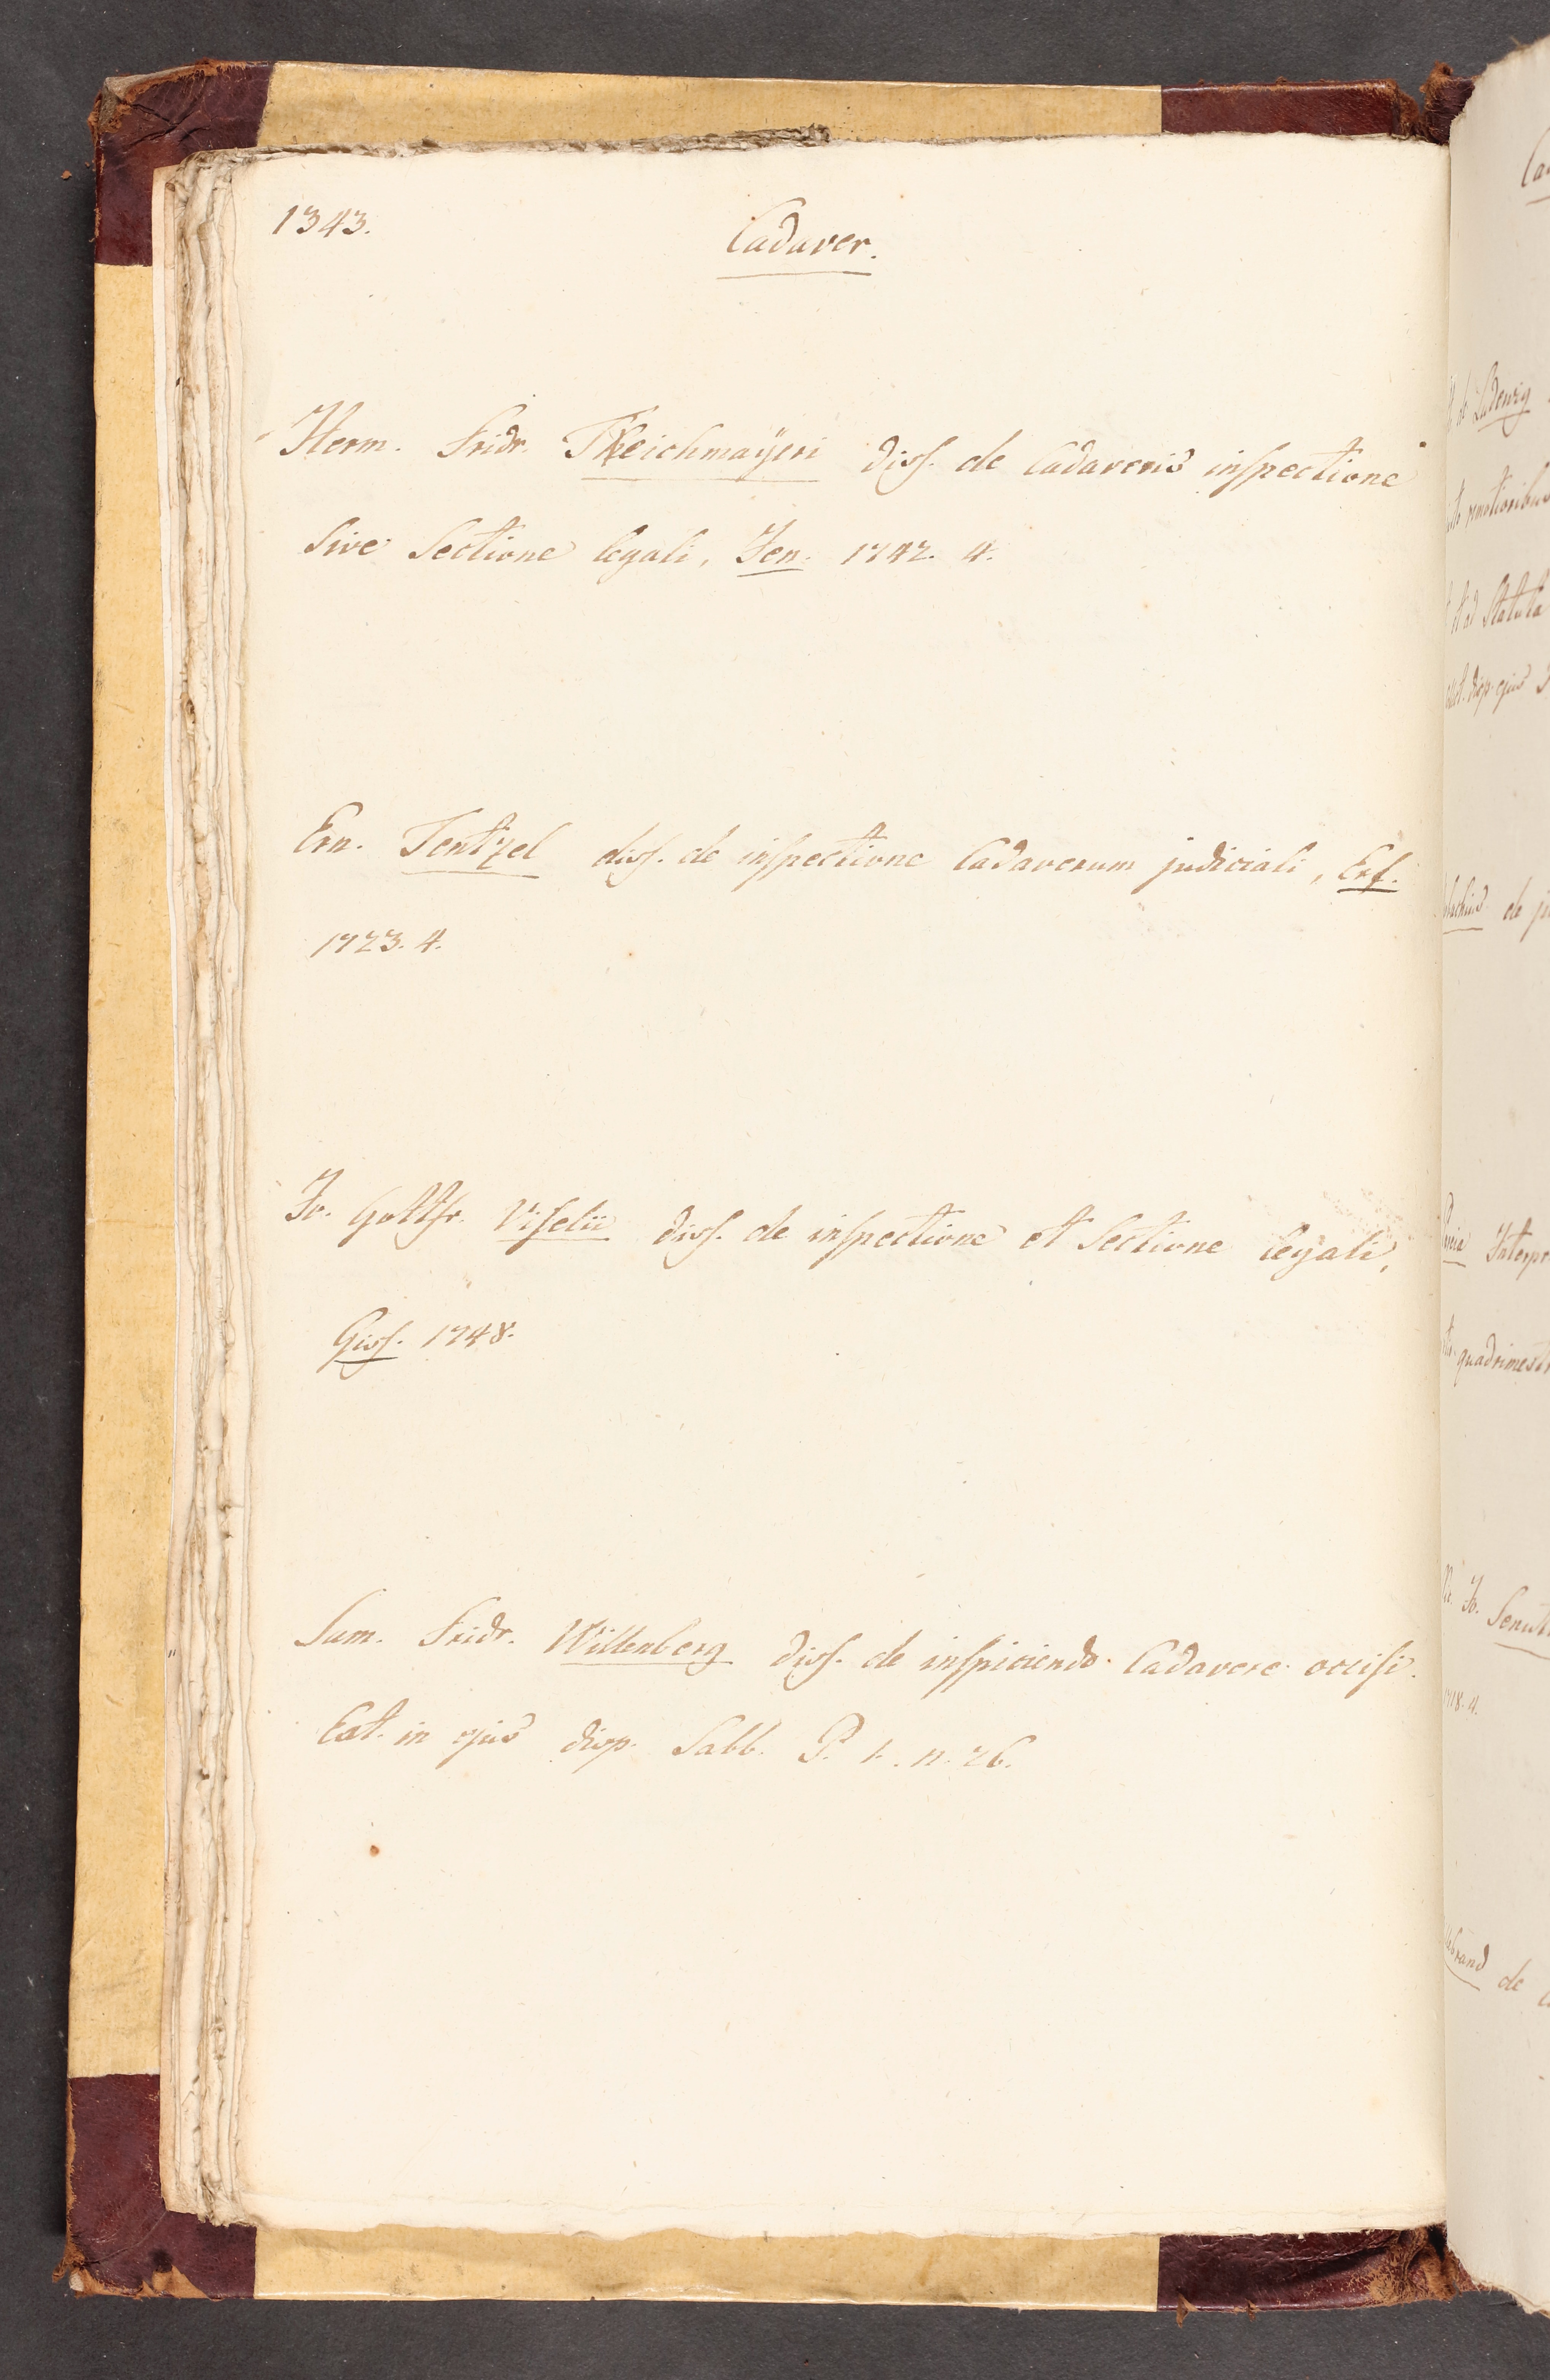 1343.
Cadaver.
Herm. Fridr. Teichmayeri diss. de Cadaveris inspectione
sive Sectione legali, Jen. 1742. 4.
Ern. Tentzel diss. de inspectione Cadaverum judiciali, Erf.
1723. 4.
Jo. Gottfr. Viselii diss. de inspectione et Sectione legali,
Giss. 1748.
Sam. Fridr. Willenberg diss. de inspiciendo Cadavere occisi.
Ext. in ejus disp. Sabb. P. 1. n. 26.
de Ludewig
et ad Statuta
disp. ejus
de
quadrimestr
1718. 4.
de